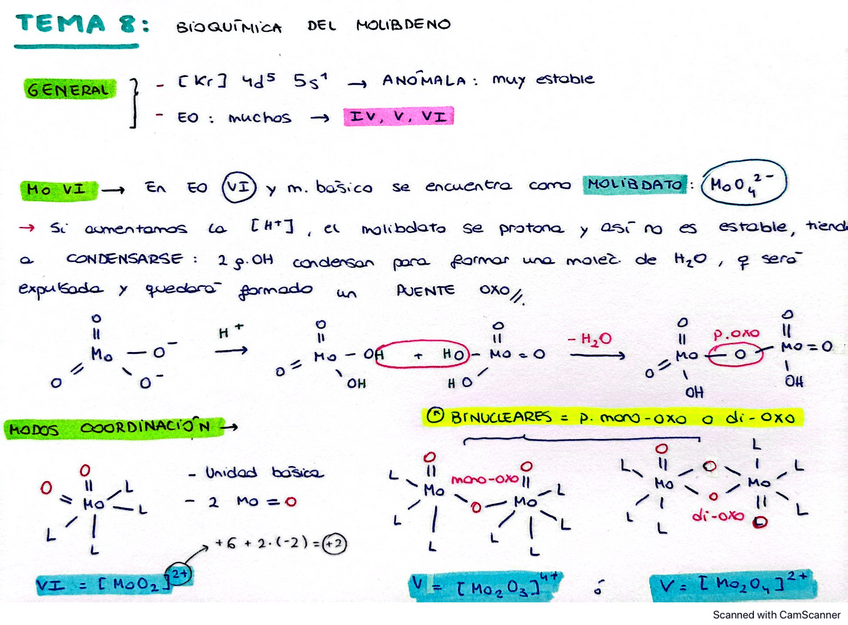 TEMA 8: BIOQUÍMICA DEL MOLIBDENO
GENERAL
- [Kr] 4d⁵ 5s¹ → ANÓMALA: muy estable
- EO: muchos → IV, V, VI
Mo VI → En EO VI y m. básico se encuentra como MOLIBDATO: MoO₄²⁻
→ Si aumentamos la [H⁺], el molibdato se protona y así no es estable, tiende
a CONDENSARSE: 2 g.OH condensan para formar una moléc. de H₂O, q será
expulsada y quedará formado un PUENTE OXO //.
O = Mo = O – O⁻ O⁻
H⁺ →
O = Mo = O – OH OH + HO – Mo = O O HO
- H₂O →
O = Mo = O OH – O – Mo = O O OH
p. oxo
MODOS COORDINACIÓN →
BINUCLEARES = p. mono-oxo o di-oxo
O = Mo = O L L L L
- Unidad básica
- 2 Mo = O
+6 + 2·(-2) = +2
O L L L L Mo O Mo O L L L L
mono-oxo
L O Mo L L L O O Mo O L L L
di-oxo
VI = [MoO₂]²⁺
V = [Mo₂O₃]⁴⁺ ó V = [Mo₂O₄]²⁺
Scanned with CamScanner